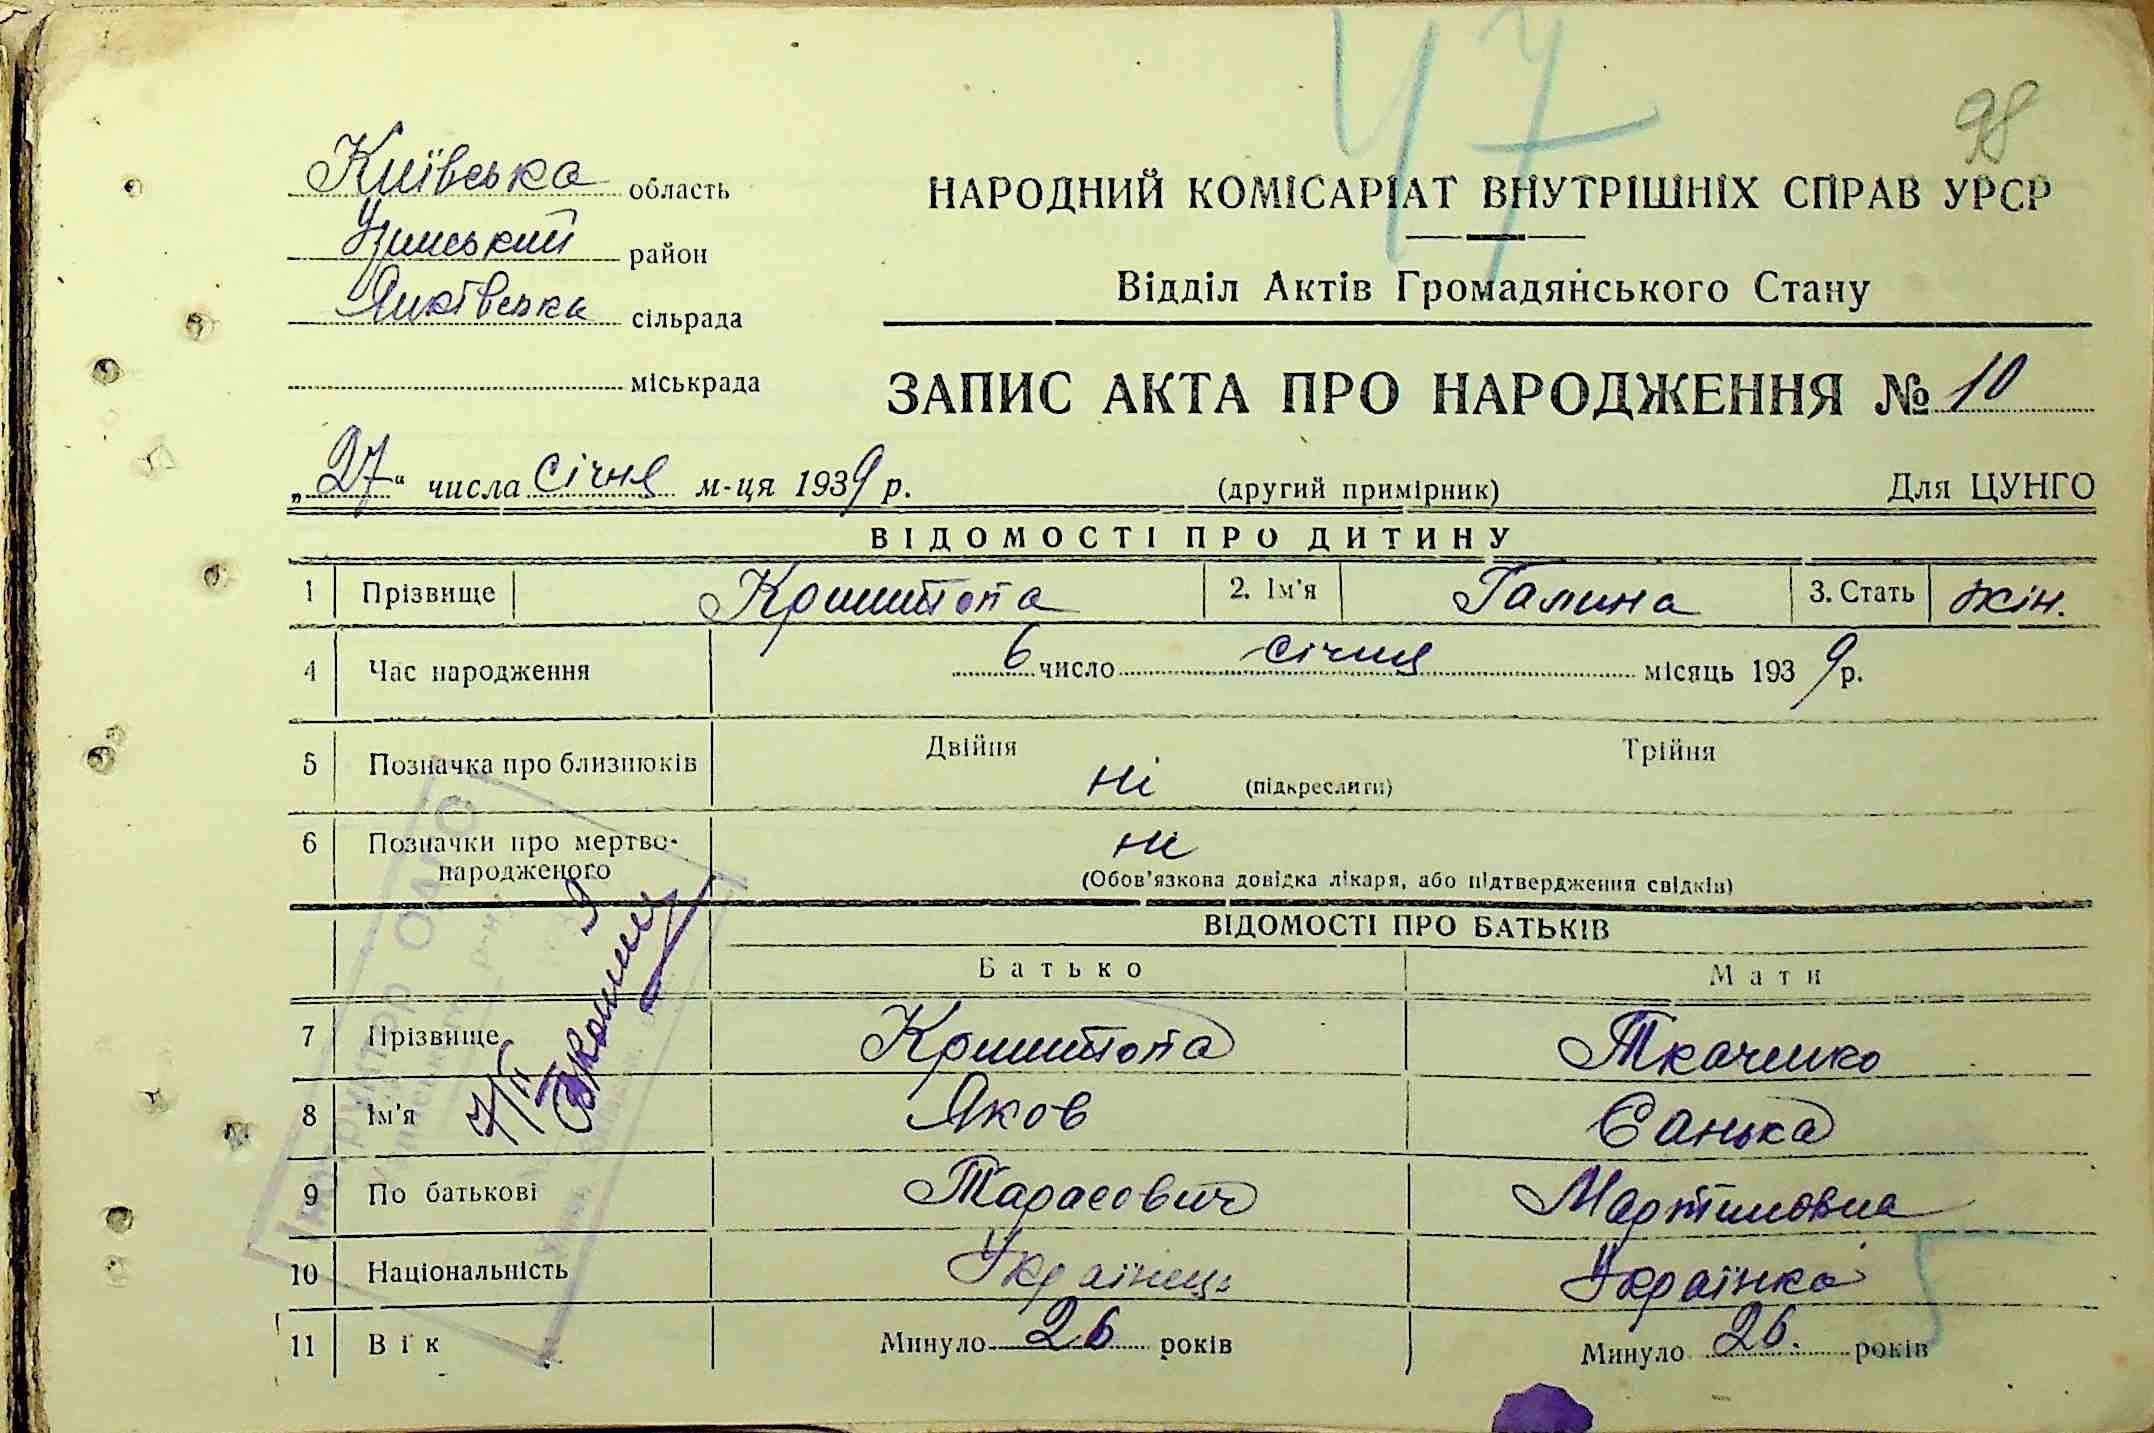 47
98
Київська область
Уманський район
сільрада
міськрада
НАРОДНИЙ КОМІСАРІАТ ВНУТРІШНІХ СПРАВ УРСР
Відділ Актів Громадянського Стану
ЗАПИС АКТА ПРО НАРОДЖЕННЯ № 10
„27“ числа січня м-ця 1939 р. (другий примірник) Для ЦУНГО
ВІДОМОСТІ ПРО ДИТИНУ
1 Прізвище Криштопа 2. Ім'я Галина 3. Стать жін.
4 Час народження 6 число січня місяць 1939 р.
5 Позначка про близнюків Двійня ні (підкреслити) Трійня
6 Позначки про мертво- ні
народженого (Обов'язкова довідка лікаря, або підтвердження свідків)
ВІДОМОСТІ ПРО БАТЬКІВ
Батько Мати
7 Прізвище Криштопа Ткаченко
8 Ім'я Яков Ганька
9 По батькові Тарасович Мартиновна
10 Національність Українець Українка
11 Вік Минуло 26 років Минуло 26. років